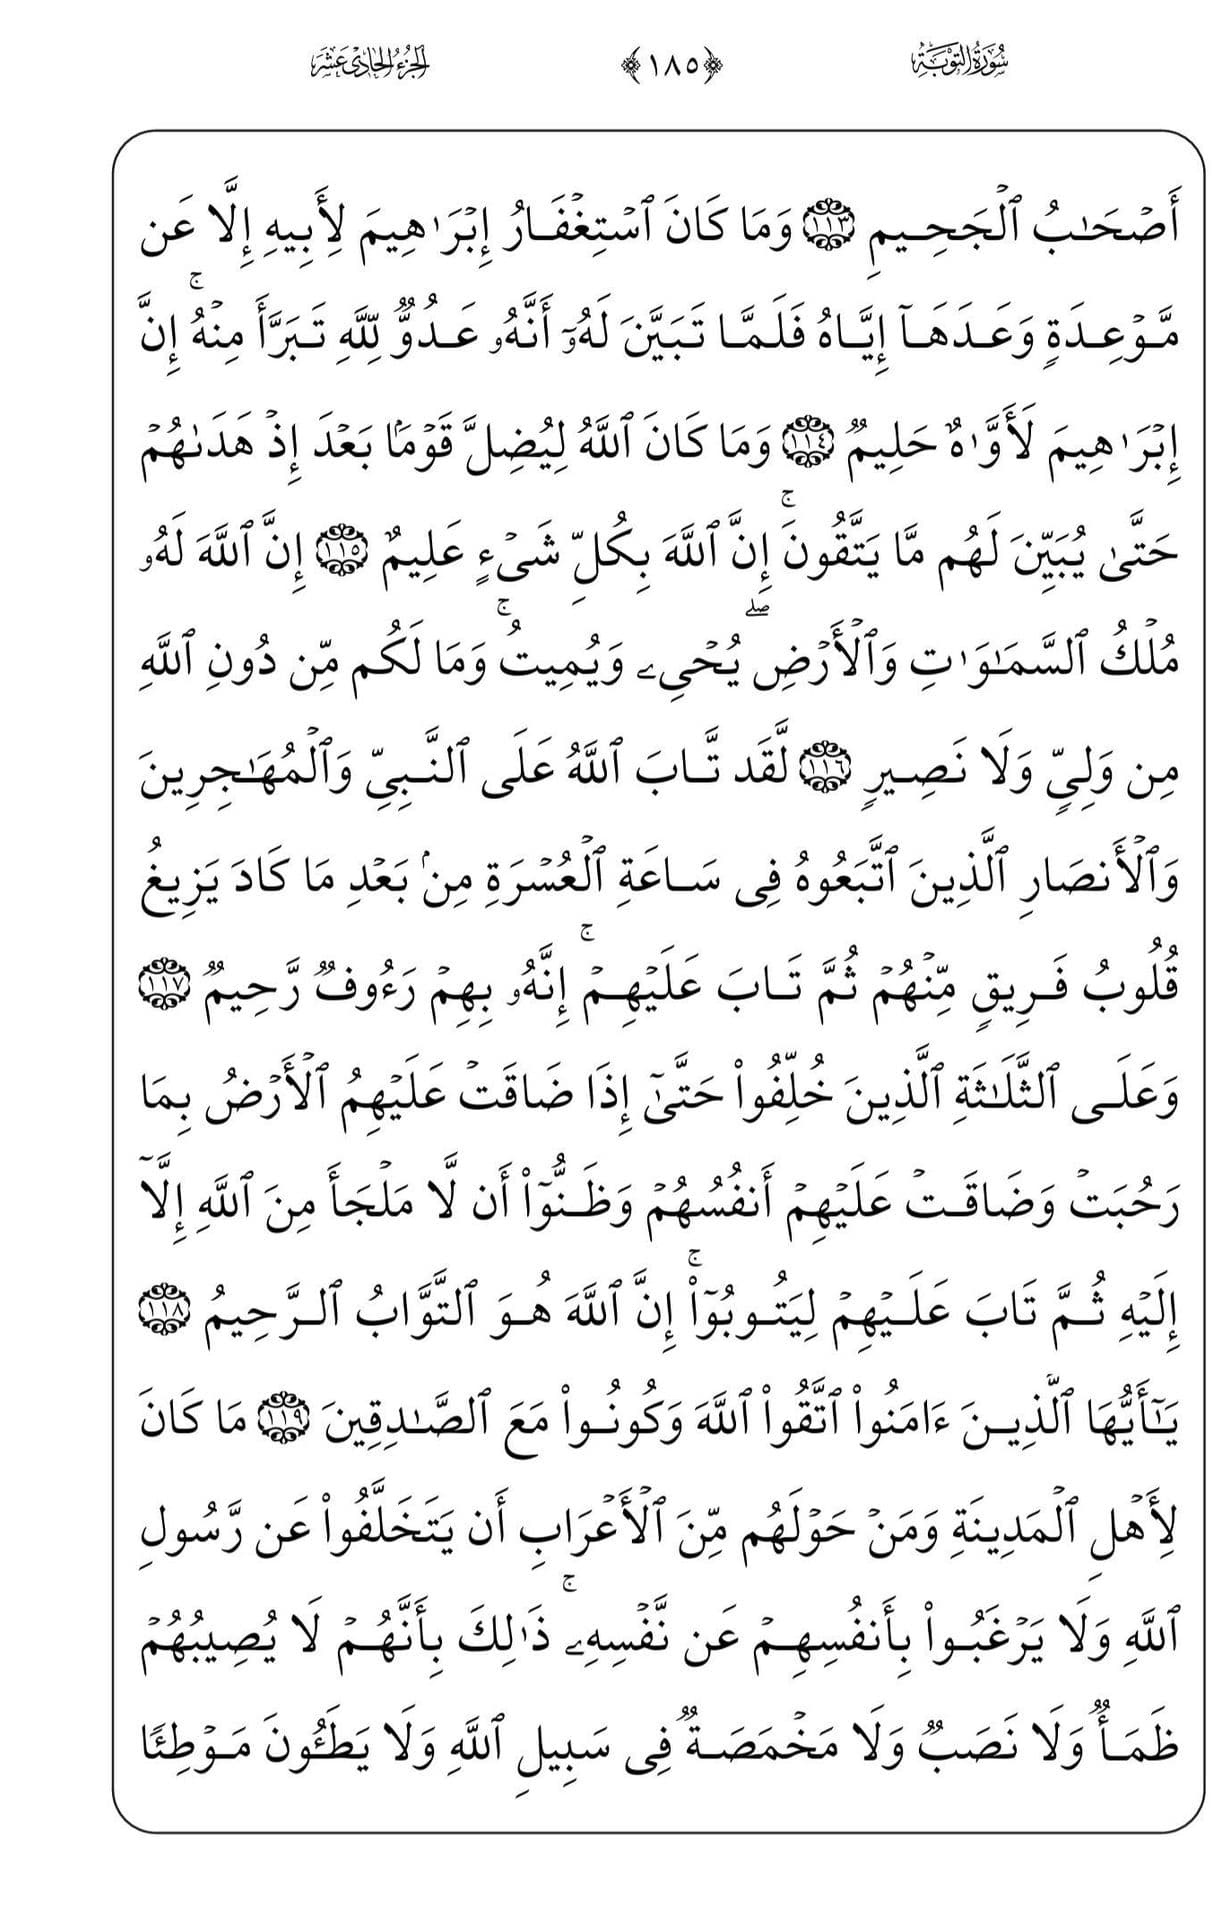 سُورَةُ التَّوۡبَةِ ﴿١٨٥﴾ الجُزۡءُ الحَادِي عَشَرَ
أَصۡحَٰبُ ٱلۡجَحِيمِ ١١٣ وَمَا كَانَ ٱسۡتِغۡفَارُ إِبۡرَٰهِيمَ لِأَبِيهِ إِلَّا عَن
مَّوۡعِدَةٖ وَعَدَهَآ إِيَّاهُ فَلَمَّا تَبَيَّنَ لَهُۥٓ أَنَّهُۥ عَدُوّٞ لِّلَّهِ تَبَرَّأَ مِنۡهُۚ إِنَّ
إِبۡرَٰهِيمَ لَأَوَّٰهٌ حَلِيمٞ ١١٤ وَمَا كَانَ ٱللَّهُ لِيُضِلَّ قَوۡمَۢا بَعۡدَ إِذۡ هَدَىٰهُمۡ
حَتَّىٰ يُبَيِّنَ لَهُم مَّا يَتَّقُونَۚ إِنَّ ٱللَّهَ بِكُلِّ شَيۡءٍ عَلِيمٌ ١١٥ إِنَّ ٱللَّهَ لَهُۥ
مُلۡكُ ٱلسَّمَٰوَٰتِ وَٱلۡأَرۡضِۖ يُحۡيِۦ وَيُمِيتُۚ وَمَا لَكُم مِّن دُونِ ٱللَّهِ
مِن وَلِيّٖ وَلَا نَصِيرٖ ١١٦ لَّقَد تَّابَ ٱللَّهُ عَلَى ٱلنَّبِيِّ وَٱلۡمُهَٰجِرِينَ
وَٱلۡأَنصَارِ ٱلَّذِينَ ٱتَّبَعُوهُ فِي سَاعَةِ ٱلۡعُسۡرَةِ مِنۢ بَعۡدِ مَا كَادَ يَزِيغُ
قُلُوبُ فَرِيقٖ مِّنۡهُمۡ ثُمَّ تَابَ عَلَيۡهِمۡۚ إِنَّهُۥ بِهِمۡ رَءُوفٞ رَّحِيمٞ ١١٧
وَعَلَى ٱلثَّلَٰثَةِ ٱلَّذِينَ خُلِّفُواْ حَتَّىٰٓ إِذَا ضَاقَتۡ عَلَيۡهِمُ ٱلۡأَرۡضُ بِمَا
رَحُبَتۡ وَضَاقَتۡ عَلَيۡهِمۡ أَنفُسُهُمۡ وَظَنُّوٓاْ أَن لَّا مَلۡجَأَ مِنَ ٱللَّهِ إِلَّآ
إِلَيۡهِ ثُمَّ تَابَ عَلَيۡهِمۡ لِيَتُوبُوٓاْۚ إِنَّ ٱللَّهَ هُوَ ٱلتَّوَّابُ ٱلرَّحِيمُ ١١٨
يَٰٓأَيُّهَا ٱلَّذِينَ ءَامَنُواْ ٱتَّقُواْ ٱللَّهَ وَكُونُواْ مَعَ ٱلصَّٰدِقِينَ ١١٩ مَا كَانَ
لِأَهۡلِ ٱلۡمَدِينَةِ وَمَنۡ حَوۡلَهُم مِّنَ ٱلۡأَعۡرَابِ أَن يَتَخَلَّفُواْ عَن رَّسُولِ
ٱللَّهِ وَلَا يَرۡغَبُواْ بِأَنفُسِهِمۡ عَن نَّفۡسِهِۦۚ ذَٰلِكَ بِأَنَّهُمۡ لَا يُصِيبُهُمۡ
ظَمَأٞ وَلَا نَصَبٞ وَلَا مَخۡمَصَةٞ فِي سَبِيلِ ٱللَّهِ وَلَا يَطَـُٔونَ مَوۡطِئٗا